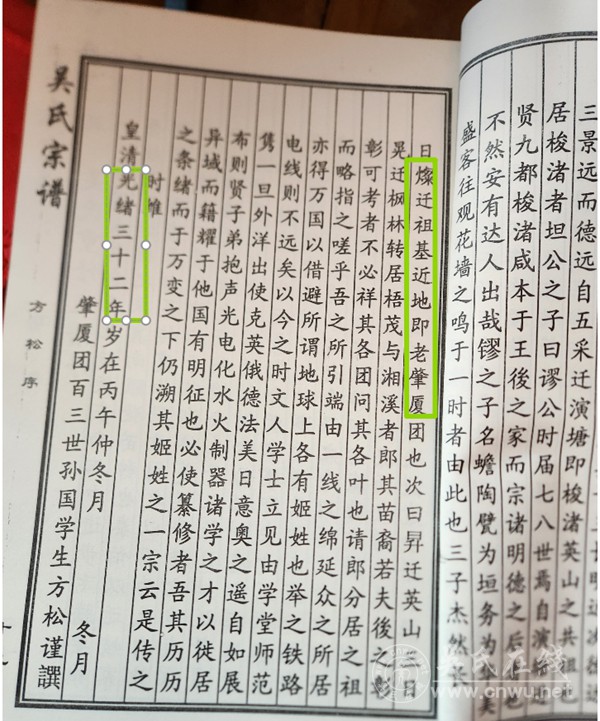 三景远而德远自五采迁演塘即梭渚英山之共祖
居梭渚者坦公之子曰谬公时届七八世焉自演
贤九都梭渚咸本于王後之家而宗诸明德之后
不然安有达人出哉镠之子名蟾陶甓为垣务为华美
盛客往观花墙之鸣于一时者由此也三子杰然长
日燦迁祖基近地即老肇厦团也次曰昇迁英山三曰
晃迁枫林转居梧茂与湘溪者郎其苗裔若夫後之彰
彰可考者不必祥其各团问其各叶也请郎分居之祖
而略指之嗟乎吾之所引端由一线之绵延众之所居
亦得万国以借避所谓地球上各有姬姓也举之铁路
电线则不远矣以今之时文人学士立见由学堂师范
隽一旦外洋出使克英俄德法美日意奥之遥自如展
布则贤子弟抱声光电化水火制器诸学之才以徙居
异域而籍耀于他国有明征也必使纂修者吾其历历
之条绪而于万变之下仍溯其姬姓之一宗云是传之
时惟
皇清光绪三十二年岁在丙午仲冬月
肇厦团百三世孙国学生方松谨譔
冬月
吴氏宗谱
方松序
吴氏在线
www.cnwu.net